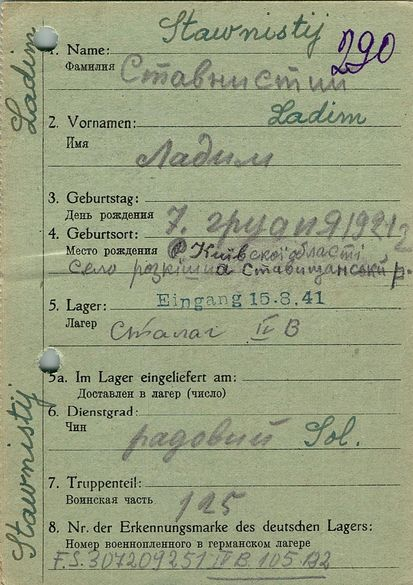 Stawnistij
1. Name:
Фамилия Ставнистий
290
2. Vornamen: Ladim
Имя Ладим
3. Geburtstag:
День рождения 7. грудня 1921 г
4. Geburtsort:
Место рождения Київскої області
село розкішна Ставищанський р.
5. Lager: Eingang 15.8.41
Лагер Сталаг II B
5a. Im Lager eingeliefert am:
Доставлен в лагер (число)
6. Dienstgrad:
Чин радовий Sol.
7. Truppenteil:
Воинская часть 125
8. Nr. der Erkennungsmarke des deutschen Lagers:
Номер военнопленного в германском лагере
F.S. 307209251 II B. 105
Ladim
Stawnistij